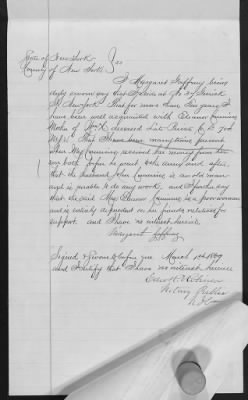 State of New York
County of New York } SS
I Margaret Gaffney being
duly sworn say that I reside at No
St New York That for more than ten years I
have been well acquainted with Eleanor Cummins
Mother of deceased Late Private Co
Regt. That I have been many times present
when Mrs Cummins received his money from
boy both before he went into army and after
that the husband John Cummins is an old man
and is unable to do any work, and I further say
that the said Mrs Eleanor Cummins is a poor woman
and is entirely dependent on her friends relatives for
support and I have no interest herein
Margaret Gaffney
Signed & Sworn to before me March 1st 1869
and I certify that I have no interest herein
Notary Public